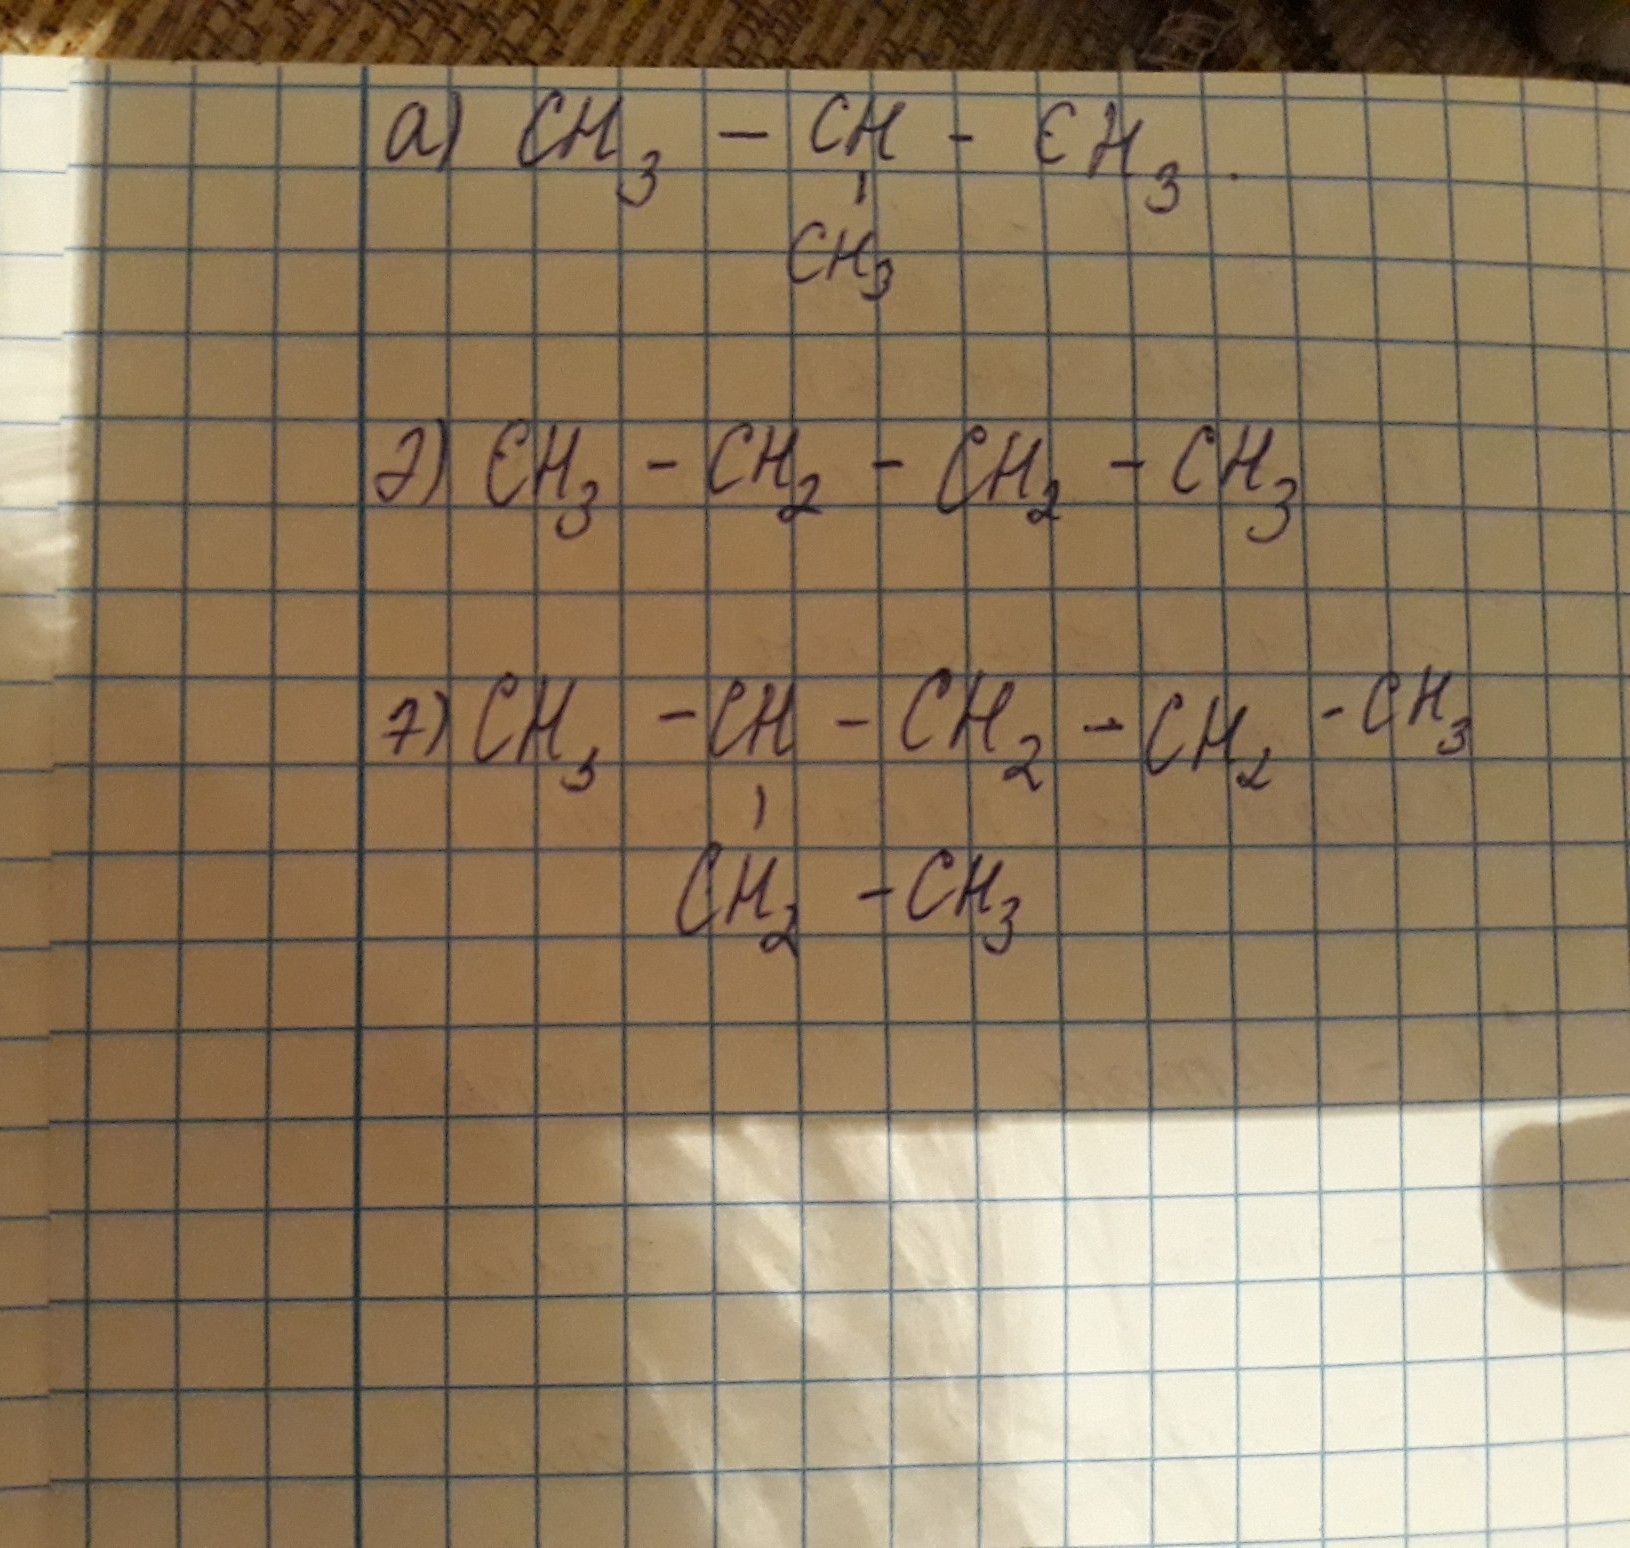 а) CH₃ – CH – CH₃.
CH₃
2) CH₃ – CH₂ – CH₂ – CH₃
7) CH₃ – CH – CH₂ – CH₂ – CH₃
CH₂ – CH₃